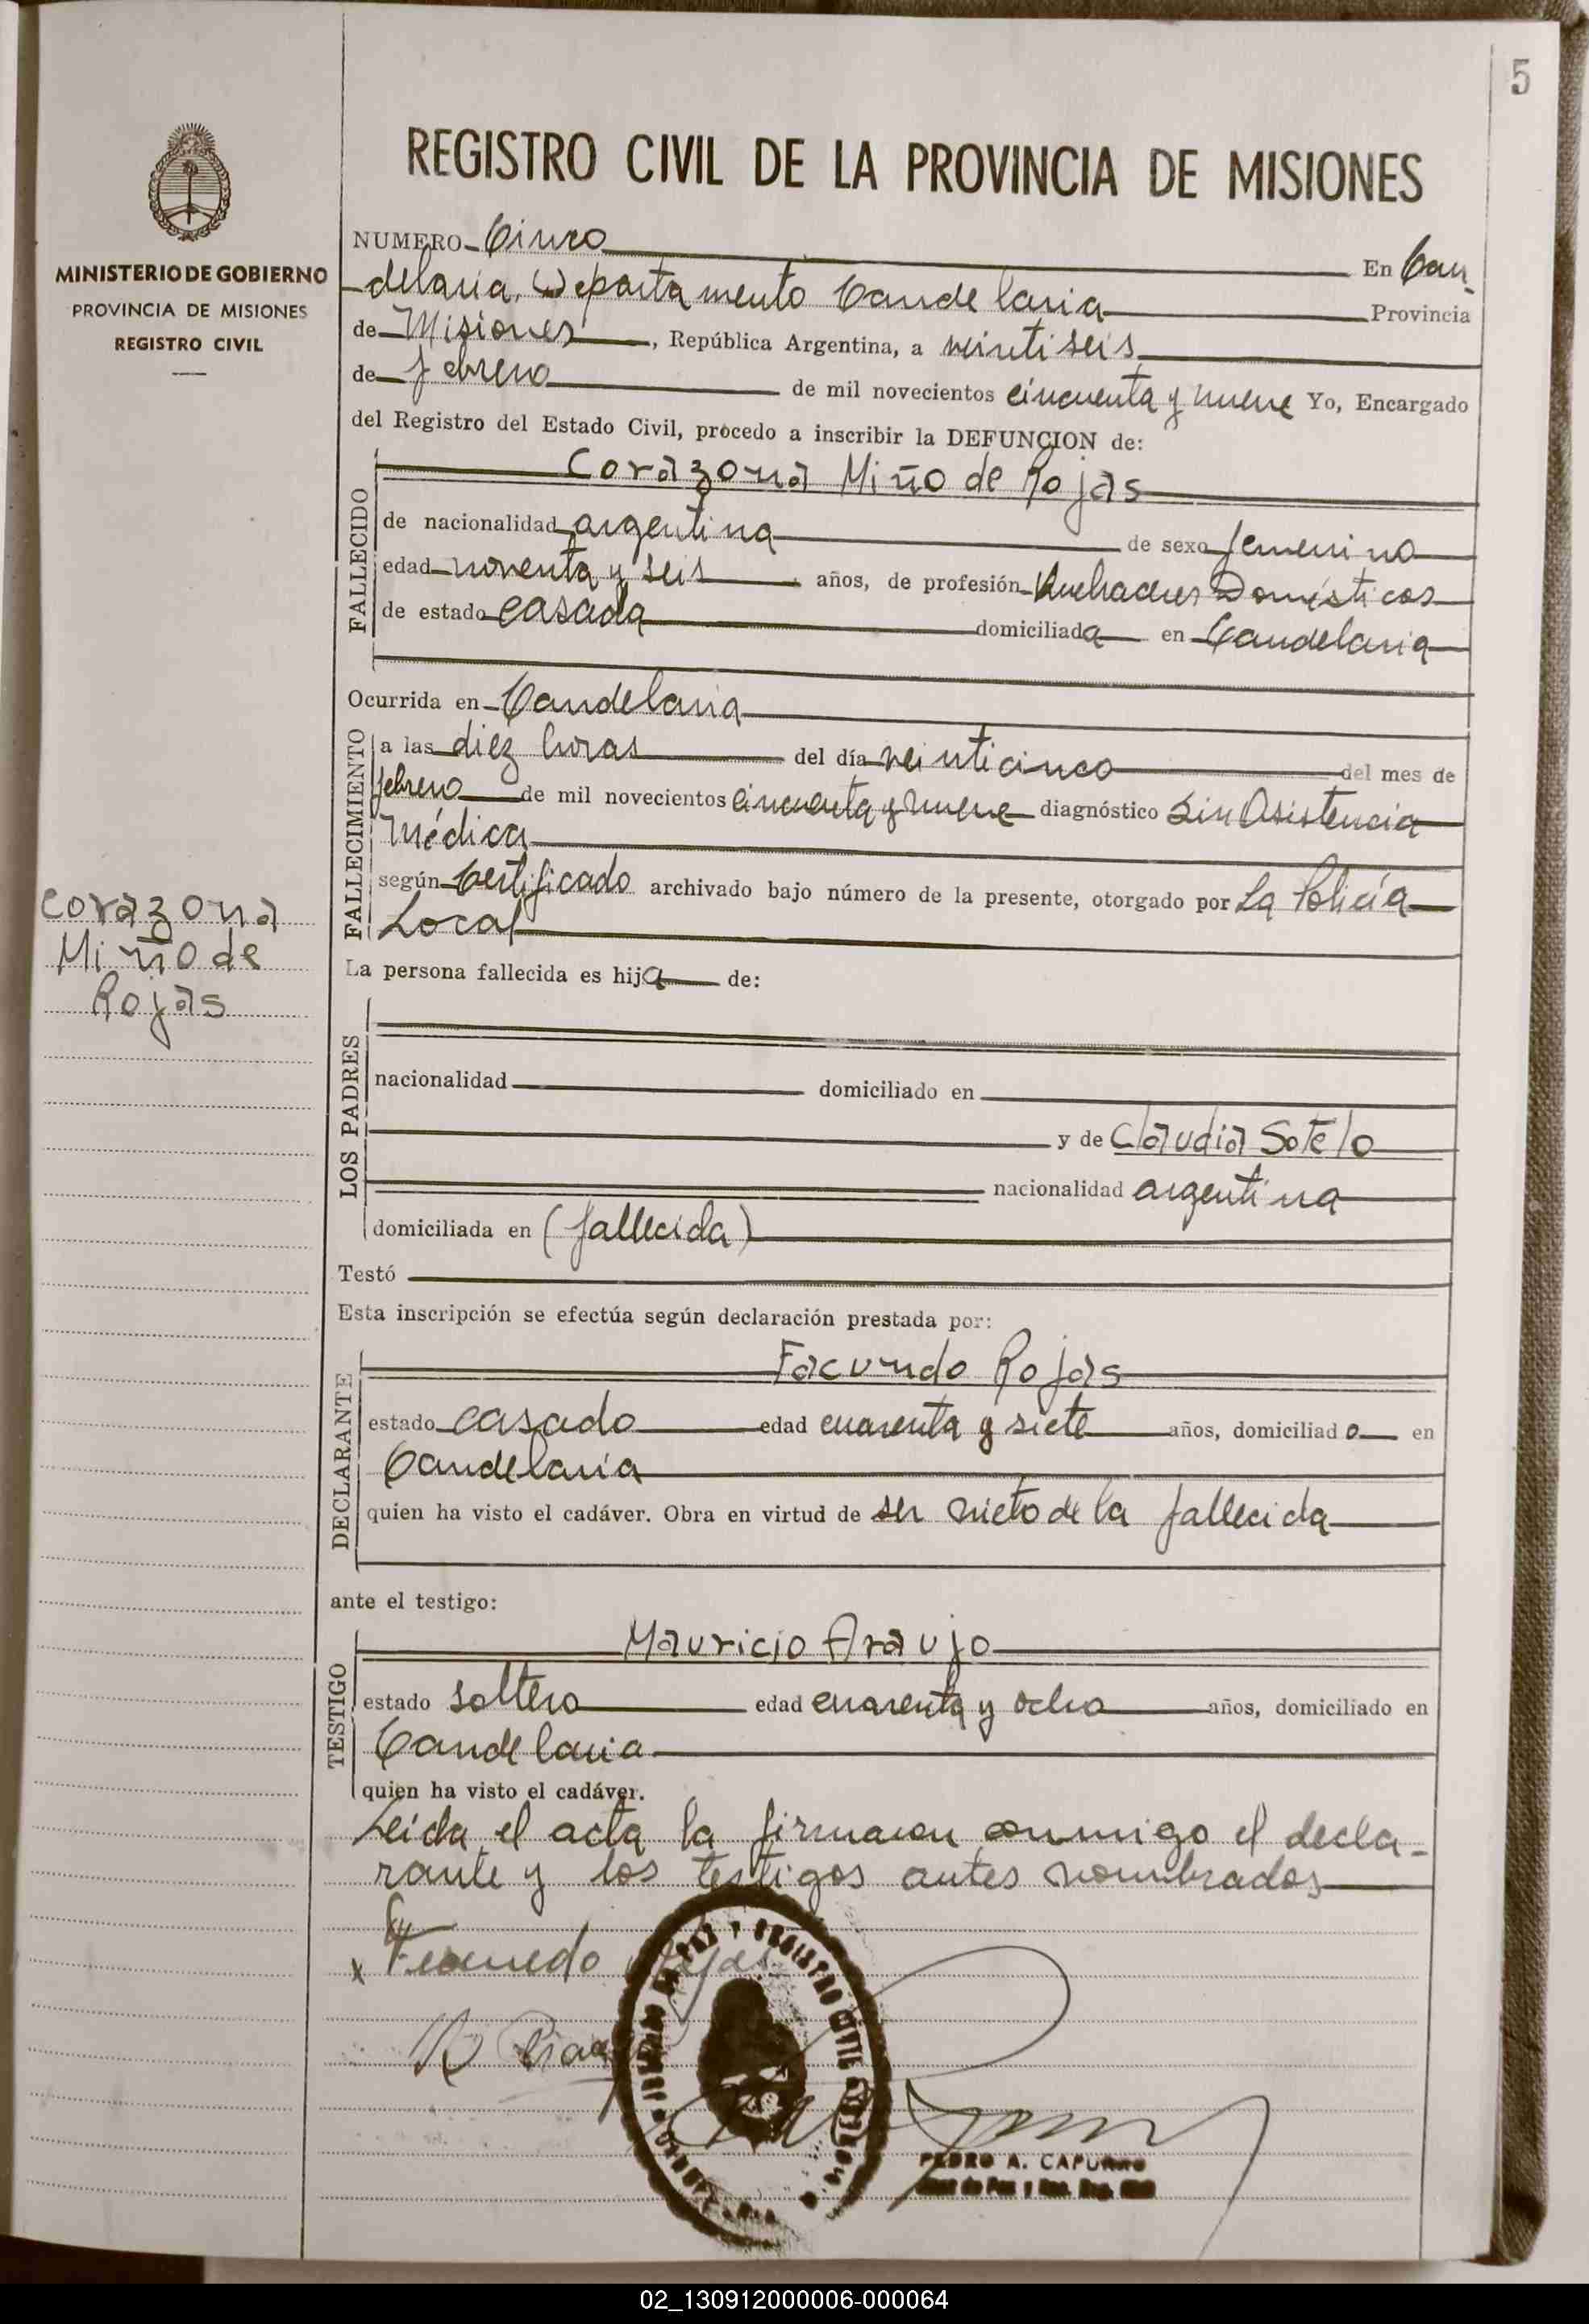 5
REGISTRO CIVIL DE LA PROVINCIA DE MISIONES
MINISTERIO DE GOBIERNO
PROVINCIA DE MISIONES
REGISTRO CIVIL
NUMERO Cinco En Can
delaria, Departamento Candelaria Provincia
de Misiones, República Argentina, a veintiseis
de febrero de mil novecientos cincuenta y nueve Yo, Encargado
del Registro del Estado Civil, procedo a inscribir la DEFUNCION de:
Corazona Miño de Rojas
FALLECIDO
de nacionalidad argentina de sexo femenino
edad noventa y seis años, de profesión Quehaceres Domésticos
de estado casada domiciliada en Candelaria
Ocurrida en Candelaria
FALLECIMIENTO
a las diez horas del día veinticinco del mes de
febrero de mil novecientos cincuenta y nueve diagnóstico Sin Asistencia
Médica
según Certificado archivado bajo número de la presente, otorgado por La Policía
Local
Corazona
Miño de
Rojas
La persona fallecida es hija de:
LOS PADRES
nacionalidad domiciliado en
y de Claudia Sotelo
nacionalidad argentina
domiciliada en (fallecida)
Testó
Esta inscripción se efectúa según declaración prestada por:
DECLARANTE
Facundo Rojas
estado casado edad cuarenta y siete años, domiciliado en
Candelaria
quien ha visto el cadáver. Obra en virtud de ser nieto de la fallecida
ante el testigo:
TESTIGO
Mauricio Araujo
estado soltero edad cuarenta y ocho años, domiciliado en
Candelaria
quien ha visto el cadáver.
Leida el acta la firmaron conmigo el decla-
rante y los testigos antes nombrados
x Facundo Rojas
REGISTRO CIVIL
PEDRO A. CAPURRO
Juez de Paz
02_130912000006-000064